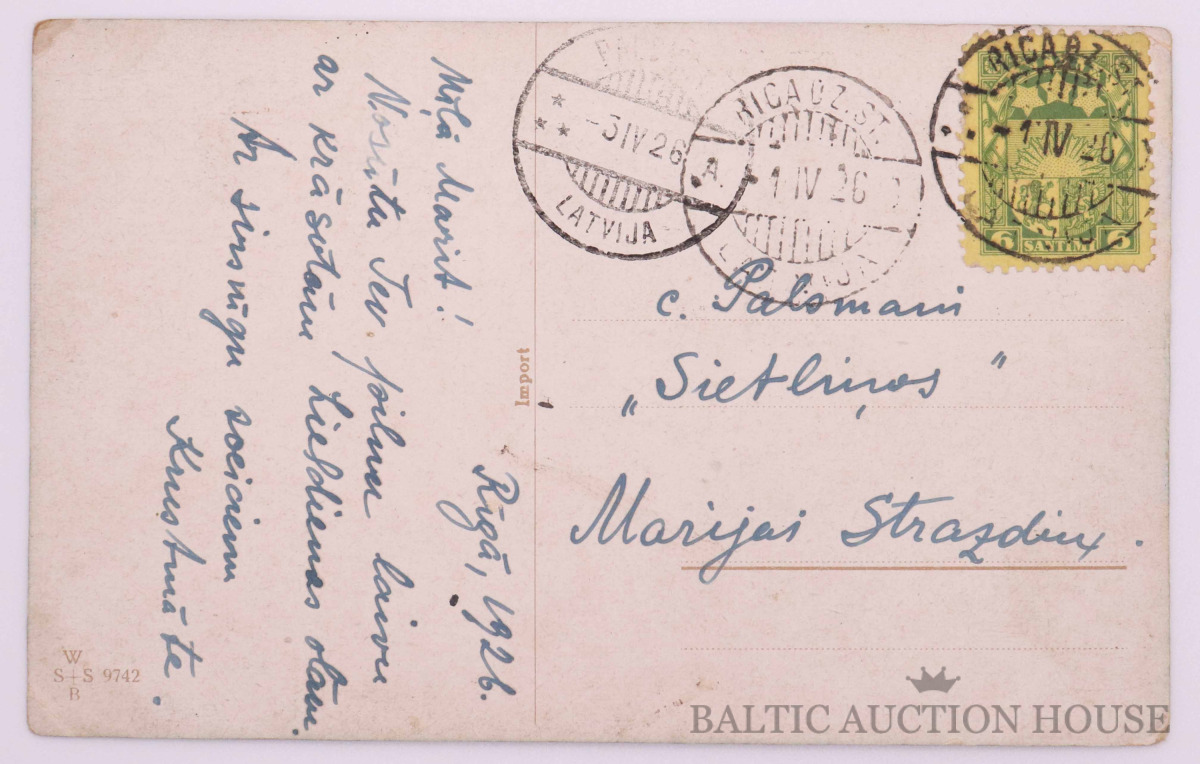 Rīgā, 1926.
Mīļā Marit!
Nosūtu Tev pilnu laivu
ar krāsotām Lieldienas olām.
Ar sirsnīgu sveicienu
Krustmāte.
Import
W
S+S 9742
B
-3 IV 26
LATVIJA
RIGA DZ. ST.
A.
1 IV 26
LATVIJA
RIGA DZ. ST.
-1 IV 26
6 SANTIMI 6
c. Palsmani
„Sietliņos"
Marijai Strazdiņ.
BALTIC AUCTION HOUSE